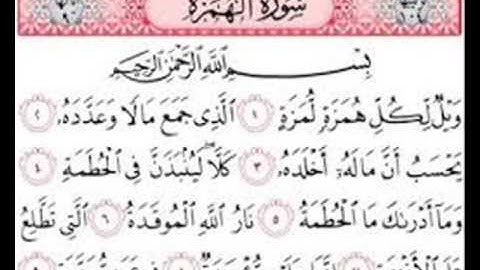 سُورَةُ الْهُمَزَةِ
بِسْمِ اللَّهِ الرَّحْمَٰنِ الرَّحِيمِ
وَيْلٌ لِّكُلِّ هُمَزَةٍ لُّمَزَةٍ ١ الَّذِى جَمَعَ مَالًا وَعَدَّدَهُ ٢
يَحْسَبُ أَنَّ مَالَهُۥٓ أَخْلَدَهُۥ ٣ كَلَّا ۖ لَيُنۢبَذَنَّ فِى الْحُطَمَةِ ٤
وَمَآ أَدْرَىٰكَ مَا الْحُطَمَةُ ٥ نَارُ اللَّهِ الْمُوقَدَةُ ٦ الَّتِى تَطَّلِعُ